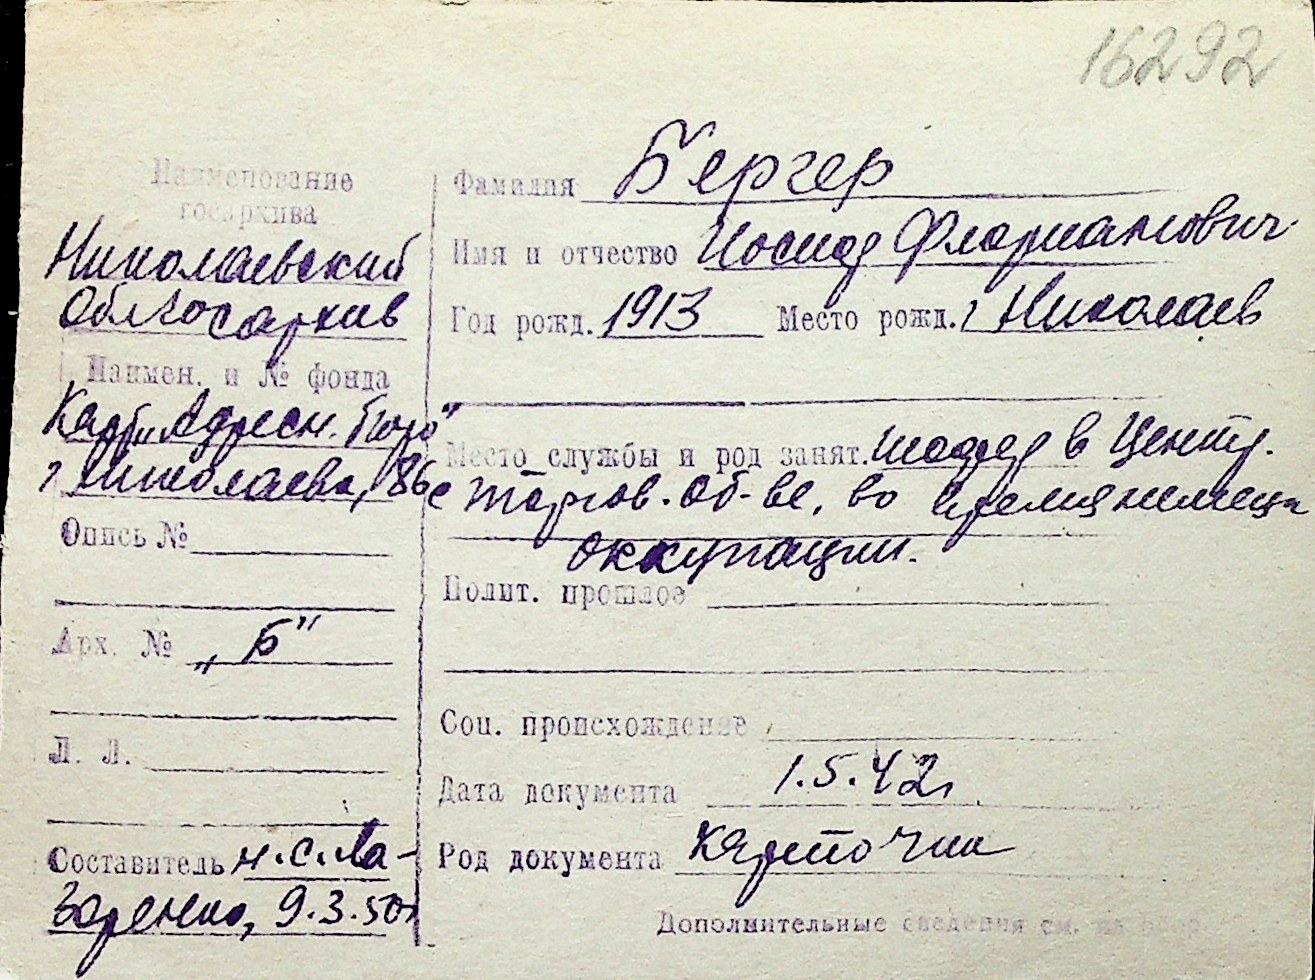 16292
Наименование
госархива
Николаевский
Облгосархив
Наимен. и № фонда
Карт. „Адресн. бюро"
г Николаева, 86с
Опись №
Арх. № „Б"
Л. Л.
Составитель н.с. Ла-
заренко, 9.3.50г
Фамилия Бергер
Имя и отчество Иосиф Флорианович
Год рожд. 1913 Место рожд. г Николаев
Место службы и род занят. шофер в Центр.
торгов. об-ве, во время немецк
оккупации.
Полит. прошлое
Соц. происхождение
Дата документа 1.5.42г
Род документа карточка
Дополнительные сведения см. на обор.